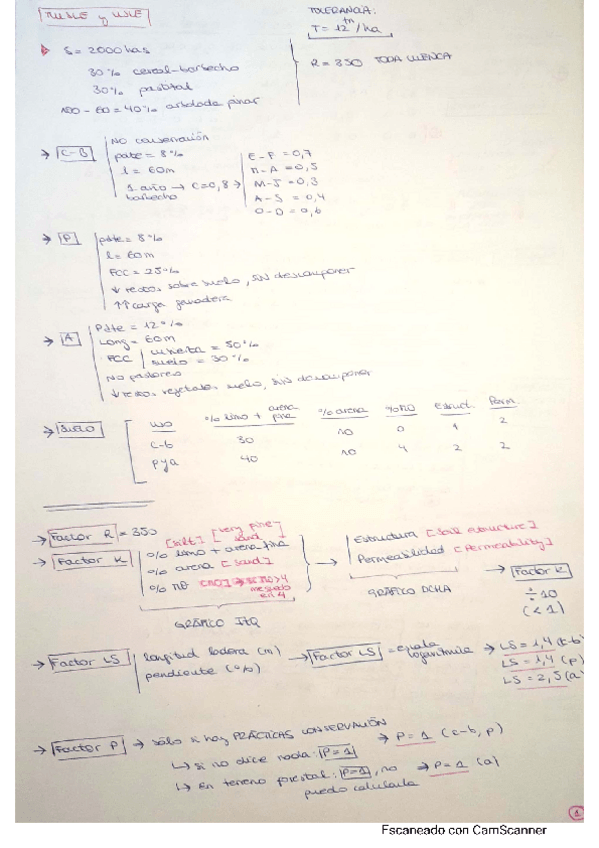 MUSLE y USLE
TOLERANCIA:
T = 12 tn/ha
S = 2000 has
30% cereal-barbecho
30% pastizal
100 - 60 = 40% arbolada pinar
R = 350 TODA CUENCA
→ C-B
NO conservación
pdte = 8%
l = 60m
1 año barbecho → C=0,8 →
E-F = 0,7
M-A = 0,5
M-J = 0,3
A-S = 0,4
O-D = 0,6
→ P
pdte = 8%
l = 60m
FCC = 25%
↓ restos sobre suelo, SIN descomponer
↑↑ carga ganadera
→ A
Pdte = 12%
Long = 60m
FCC cubierta = 50%
suelo = 30%
NO pastoreo
↓ restos vegetales suelo, SIN descomponer
→ SUELO
uso % limo + arena fina % arena % MO Estruct. Perm.
c-b 30 no 0 1 2
p y a 40 no 4 2 2
→ Factor R = 350
→ Factor K
[silt] [very fine sand]
% limo + arena fina
% arena [sand]
% MO [MO] → si MO>4 me quedo en 4
GRÁFICO IZQ
→ Estructura [Soil structure]
Permeabilidad [Permeability]
GRÁFICO DCHA
→ Factor K
÷10
(<1)
→ Factor LS
longitud ladera (m)
pendiente (%)
→ Factor LS = escala logarítmica → LS = 1,4 (c-b)
LS = 1,4 (p)
LS = 2,5 (a)
→ Factor P → sólo si hay PRÁCTICAS CONSERVACIÓN
↳ si no dice nada: P=1 → P = 1 (c-b, p)
↳ En terreno forestal: P=1, no puedo calcularla → P = 1 (a)
1
Escaneado con CamScanner